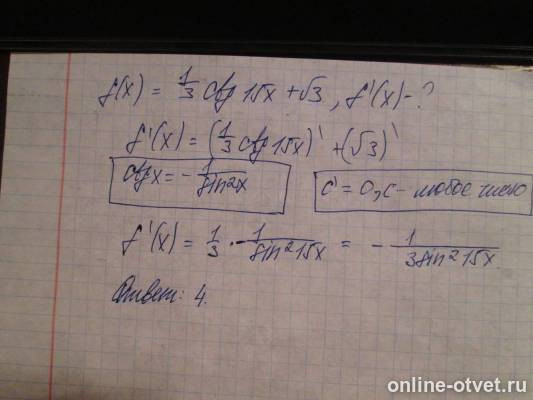 f(x) = 1/3 ctg 15x + √3, f'(x) - ?
f'(x) = (1/3 ctg 15x)' + (√3)'
ctg x = - 1/sin²x
c' = 0, c - любое число
f'(x) = 1/3 · - 1/sin²15x = - 1/3sin²15x
Ответ: 4.
online-otvet.ru